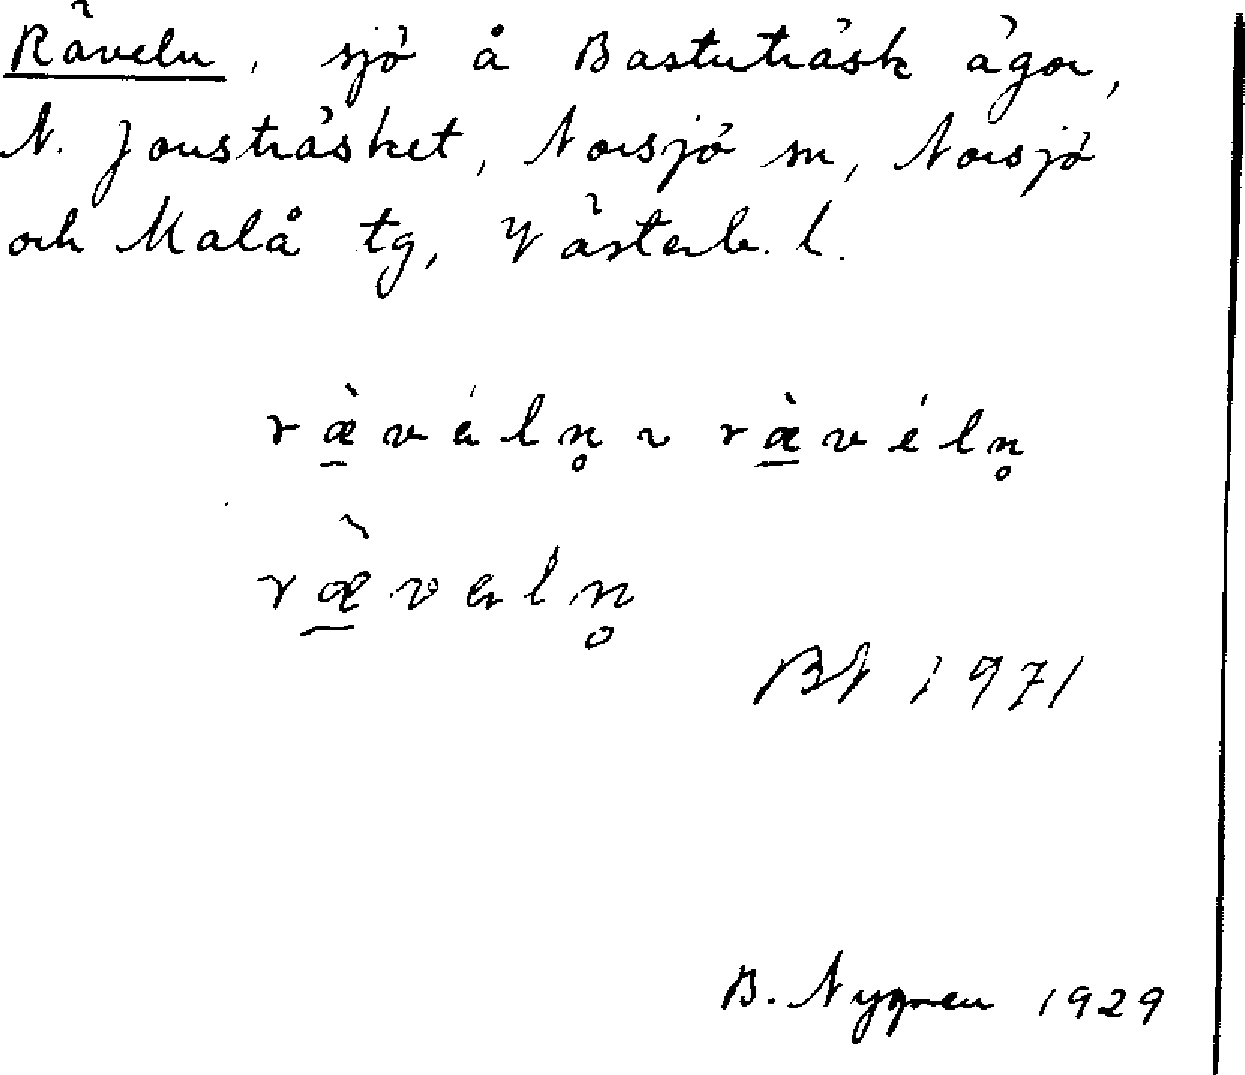 Räveln, sjö å Bastuträsk ägor,
N. Jonsträsket, Norsjö sn, Norsjö
och Malå tg, Västerb. l.
ræ̀vél̥n ~ ræ̀véln̥
ræ̀veln̥
BN 1971
B. Nygren 1929